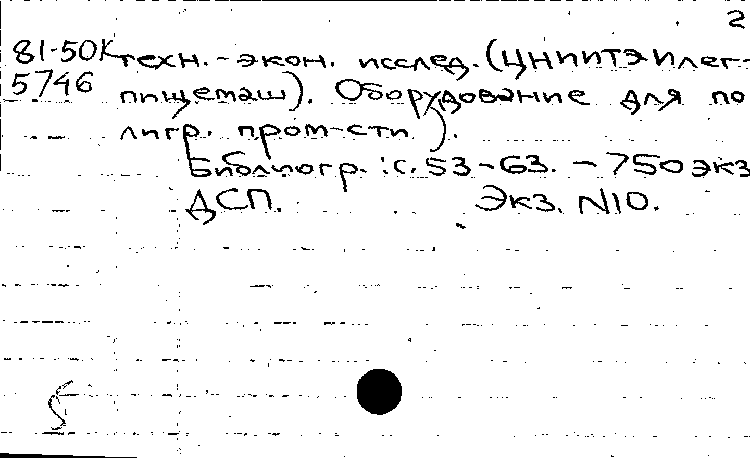 2
81-50К техн.-экон. исслед. (ЦНИИТЭИлег-
5746 пищемаш). Оборудование для по
лигр. пром-сти).
Библиогр.: с. 53-63. - 750 экз
ДСП. Экз. N10.